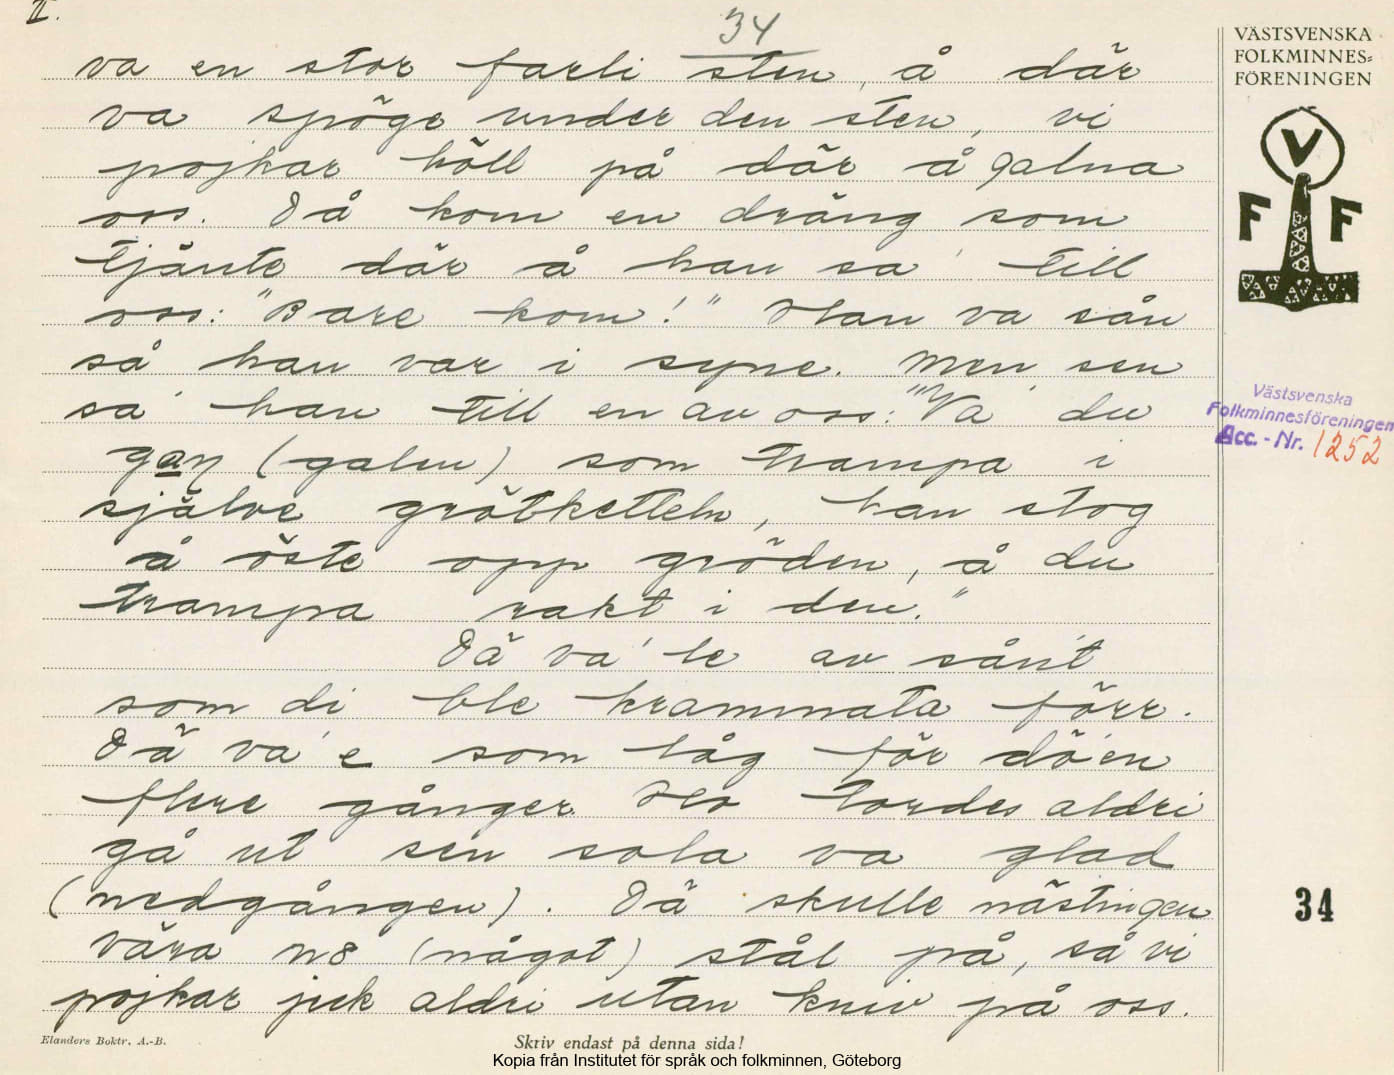 II.
34
va en stor farli sten, å där
va spöge under den sten, vi
pojkar höll på där å galna
oss. Då kom en dräng som
tjänte där å han sa' till
oss: "Bare kom!" Han va sån
så han var i syne. Men sen
sa' han till en av oss: "Va' du
gaŋ (galen) som trampa i
själve grötketteln, han stog
å öste opp gröden, å du
trampa rakt i den."
Dä va' le av sånt
som di ble krammata förr.
Dä va' e som låg för dö'en
flere gånger. Ho tordes aldri
gå ut sen sola va glad
(nedgången). Dä skulle nästingen
våra nɤ (något) stål på, så vi
pojkar jick aldri utan kniv på oss.
VÄSTSVENSKA
FOLKMINNES=
FÖRENINGEN
V
F F
Västsvenska
Folkminnesföreningen
Acc. - Nr. 1252
34
Elanders Boktr. A.-B.
Skriv endast på denna sida!
Kopia från Institutet för språk och folkminnen, Göteborg